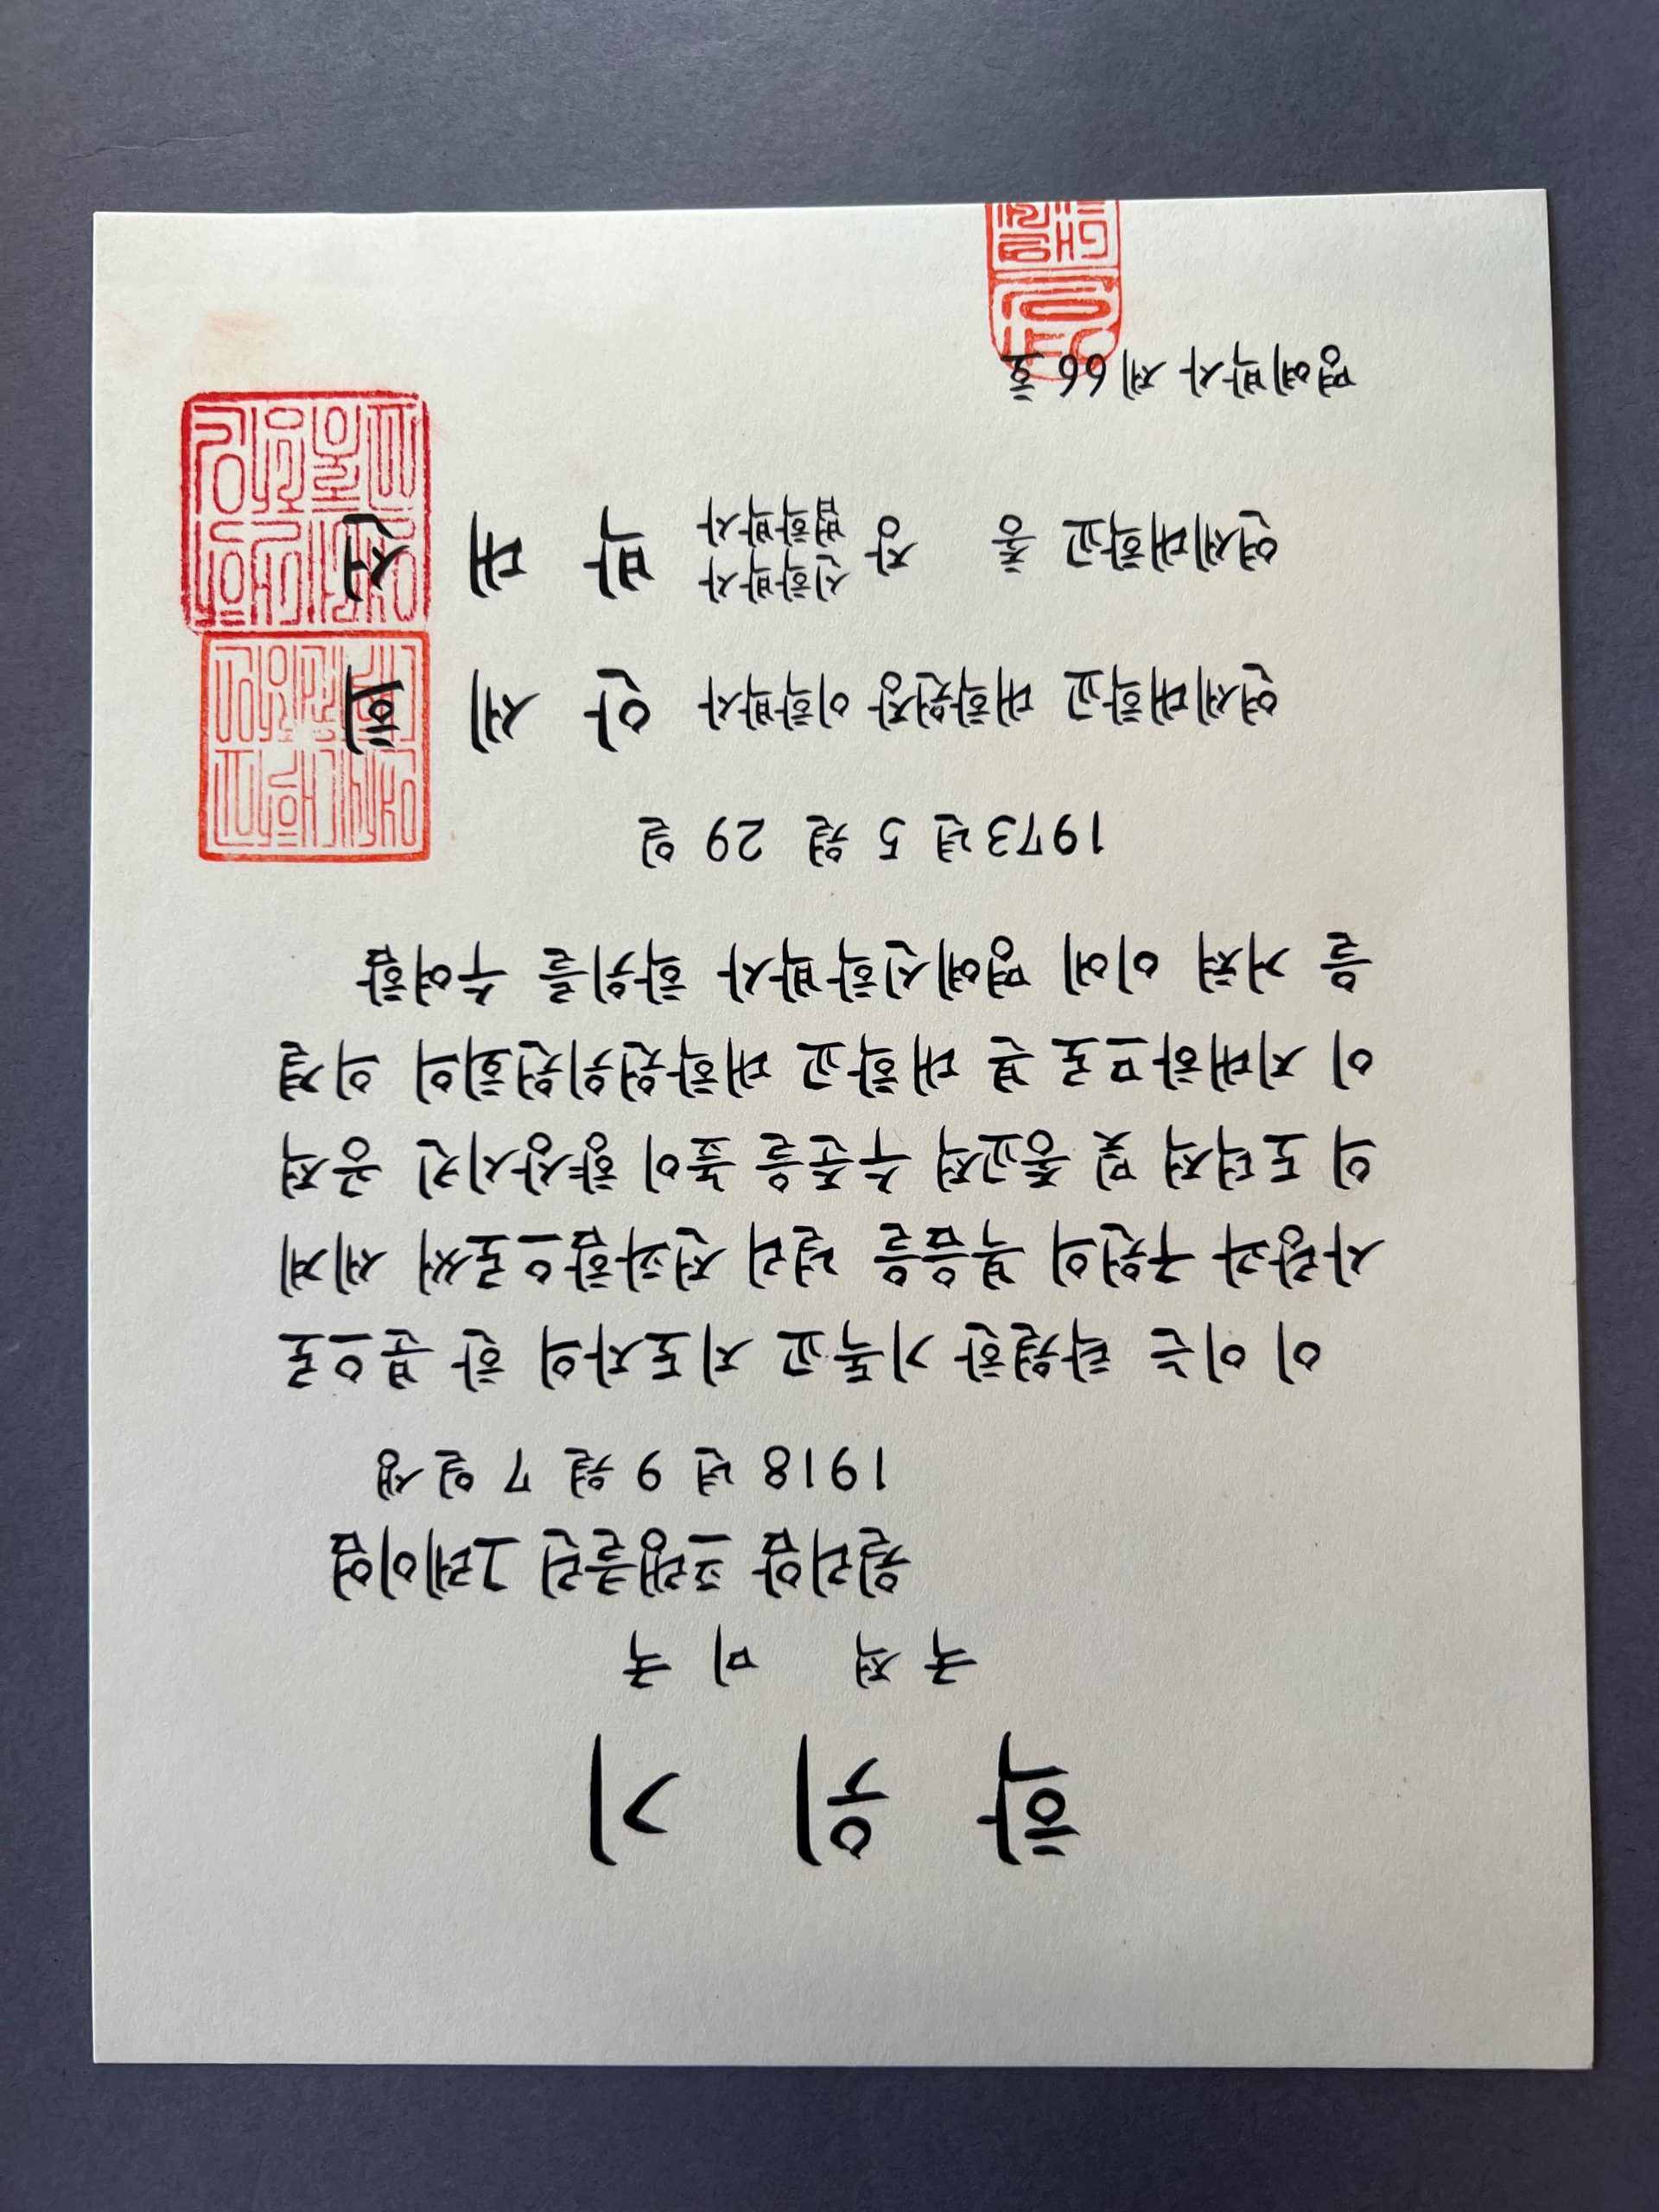 학 위 기
국 적 미 국
윌리엄 프랭클린 그레이엄
1918 년 9 월 7 일 생
이 이는 탁월한 기독교 지도자의 한 분으로
사랑과 구원의 복음을 널리 전파함으로써 세계
의 도덕적 및 종교적 수준을 높이 향상시킨 공적
이 지대하므로 본 대학교 대학원위원회의 의결
을 거쳐 이에 명예신학박사 학위를 수여함
1973년 5 월 29 일
연세대학교 대학원장 이학박사 안 세 희
연세대학교 총 장 신학박사 법학박사 박 대 선
명예박사 제 66 호